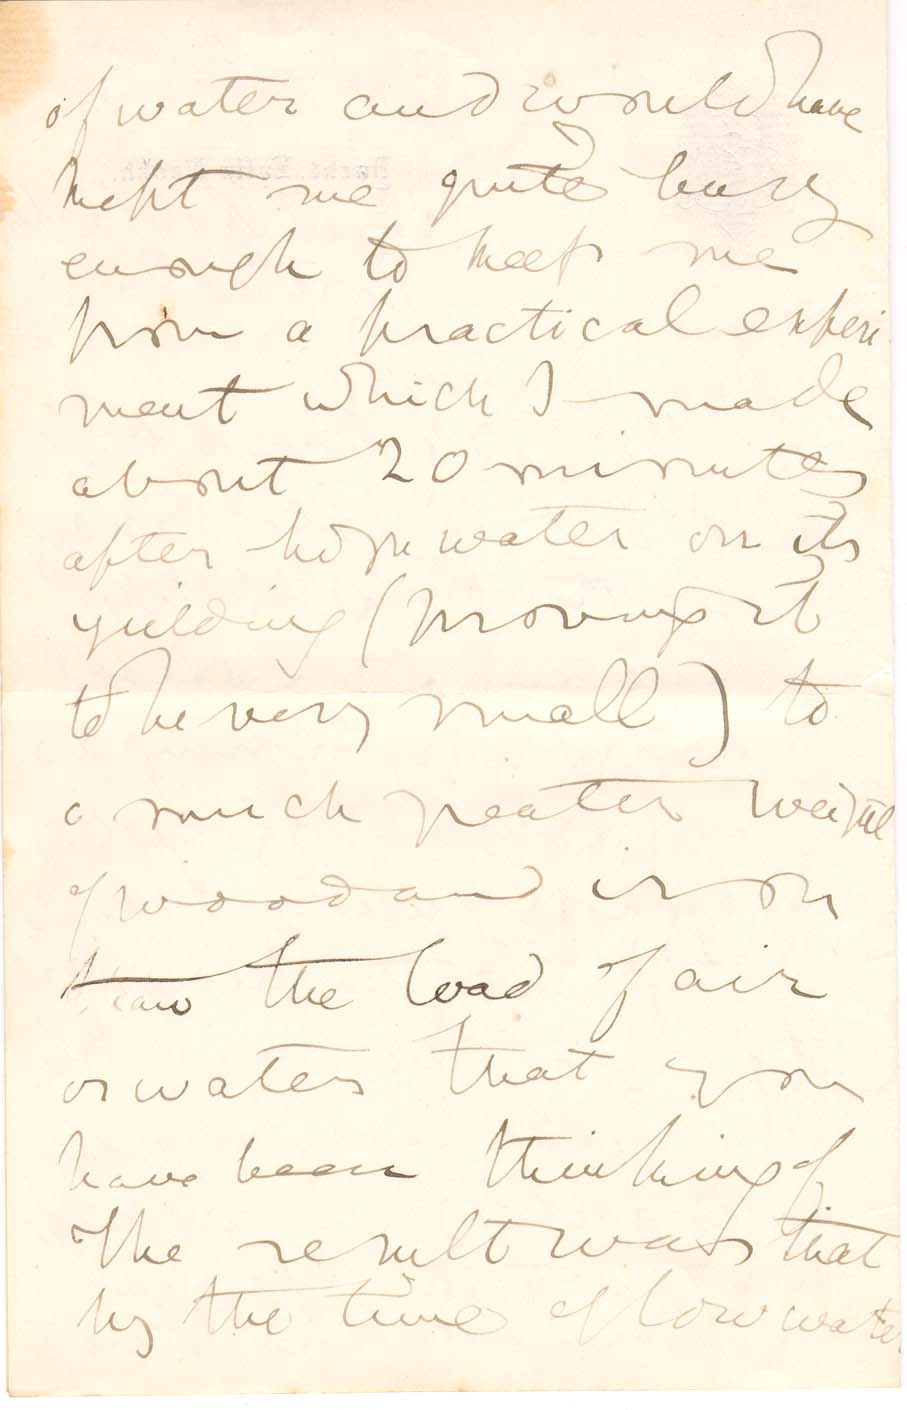 of water and would have
kept me quite busy
enough to keep me
from a practical experi
ment which I made
about 20 minutes
after high water on its
yielding (proving it
to be very small) to
a much greater weight
of wood and iron
than the load of air
or water that you
have been thinking of
The result was that
by the time of low water